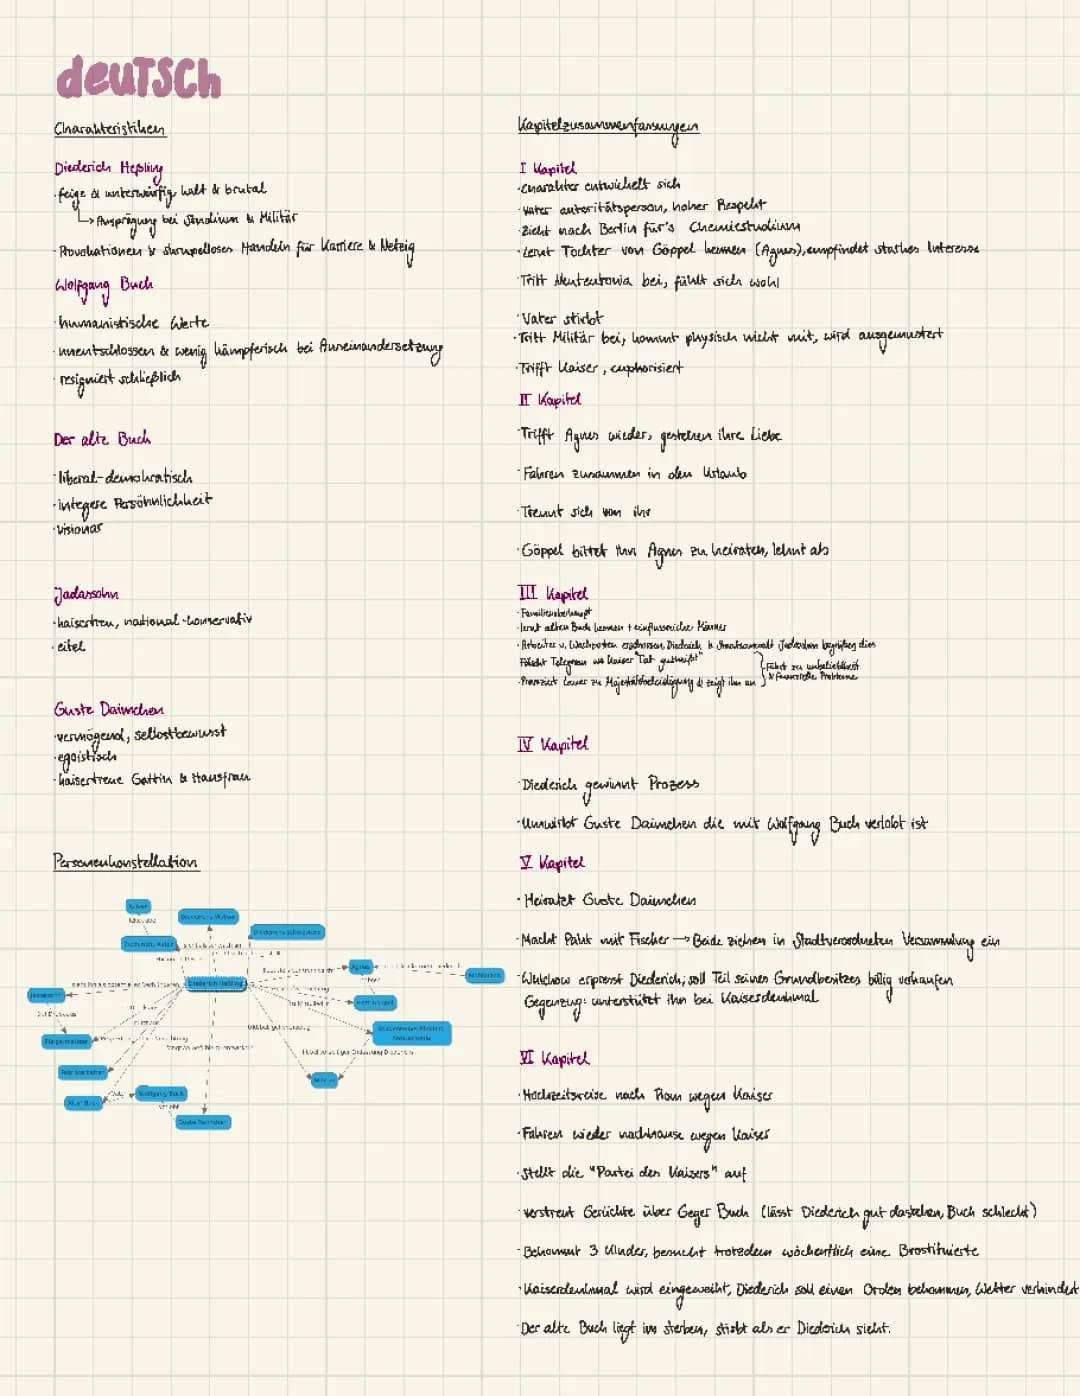 deutsch
Charakteristiken
Diederich Heßling
·feige & unterwürfig, kalt & brutal
→ Ausprägung bei Studium & Militär
·Provokationen & skrupelloses Handeln für Karriere & Netzig
Wolfgang Buch
·humanistische Werte
·unentschlossen & wenig kämpferisch bei Auseinandersetzung
·resigniert schließlich
Der alte Buch
·liberal-demokratisch
·integere Persöhnlichkeit
·visionär
Jadassohn
·kaisertreu, national-konservativ
·eitel
Guste Daimchen
·vermögend, selbstbewusst
·egoistisch
·kaisertreue Gattin & Hausfrau
Personenkonstellation
Diederichs Mutter
Agnes
Diederich Heßling
Bürgermeister
Wolfgang Buck
verlobt
Kapitelzusammenfassungen
I Kapitel
·Charakter entwickelt sich
·Vater autoritätsperson, hoher Respekt
·Zieht nach Berlin für's Chemiestudium
·Lernt Tochter von Göppel kennen (Agnes), empfindet starkes Interesse
·Tritt Neuteutonia bei, fühlt sich wohl
·Vater stirbt
·Tritt Militär bei, kommt physisch nicht mit, wird ausgemustert
·Trifft Kaiser, euphorisiert
II Kapitel
·Trifft Agnes wieder, gestehen ihre Liebe
·Fahren zusammen in den Urlaub
·Trennt sich von ihr
·Göppel bittet ihn Agnes zu heiraten, lehnt ab
III Kapitel
·Familienoberhaupt
·lernt alten Buck kennen + einflussreiche Männer
·Arbeiter v. Wachposten erschossen, Diederich & Staatsanwalt Jadassohn begrüßen dies
Fälscht Telegram wo Kaiser "Tat gutheißt"
·Provoziert Lauer zu Majestätsbeleidigung & zeigt ihn an
Führt zu unbeliebtheit
& finanzielle Probleme
IV Kapitel
·Diederich gewinnt Prozess
·Umwirbt Guste Daimchen die mit Wolfgang Buch verlobt ist
V Kapitel
·Heiratet Guste Daimchen
·Macht Pakt mit Fischer → Beide ziehen in Stadtverordneten Versammlung ein
·Wulckow erpresst Diederich, soll Teil seines Grundbesitzes billig verkaufen
Gegenzug: unterstützt ihn bei Kaiserdenkmal
VI Kapitel
·Hochzeitsreise nach Rom wegen Kaiser
·Fahren wieder nachhause wegen Kaiser
·Stellt die "Partei des Kaisers" auf
·verstreut Gerüchte über Geger Buch (lässt Diederich gut dastehen, Buch schlecht)
·Bekommt 3 Kinder, besucht trotzdem wöchentlich eine Prostituierte
·Kaiserdenkmal wird eingeweiht, Diederich soll einen Orden bekommen, Wetter verhindert
·Der alte Buch liegt im sterben, stirbt als er Diederich sieht.